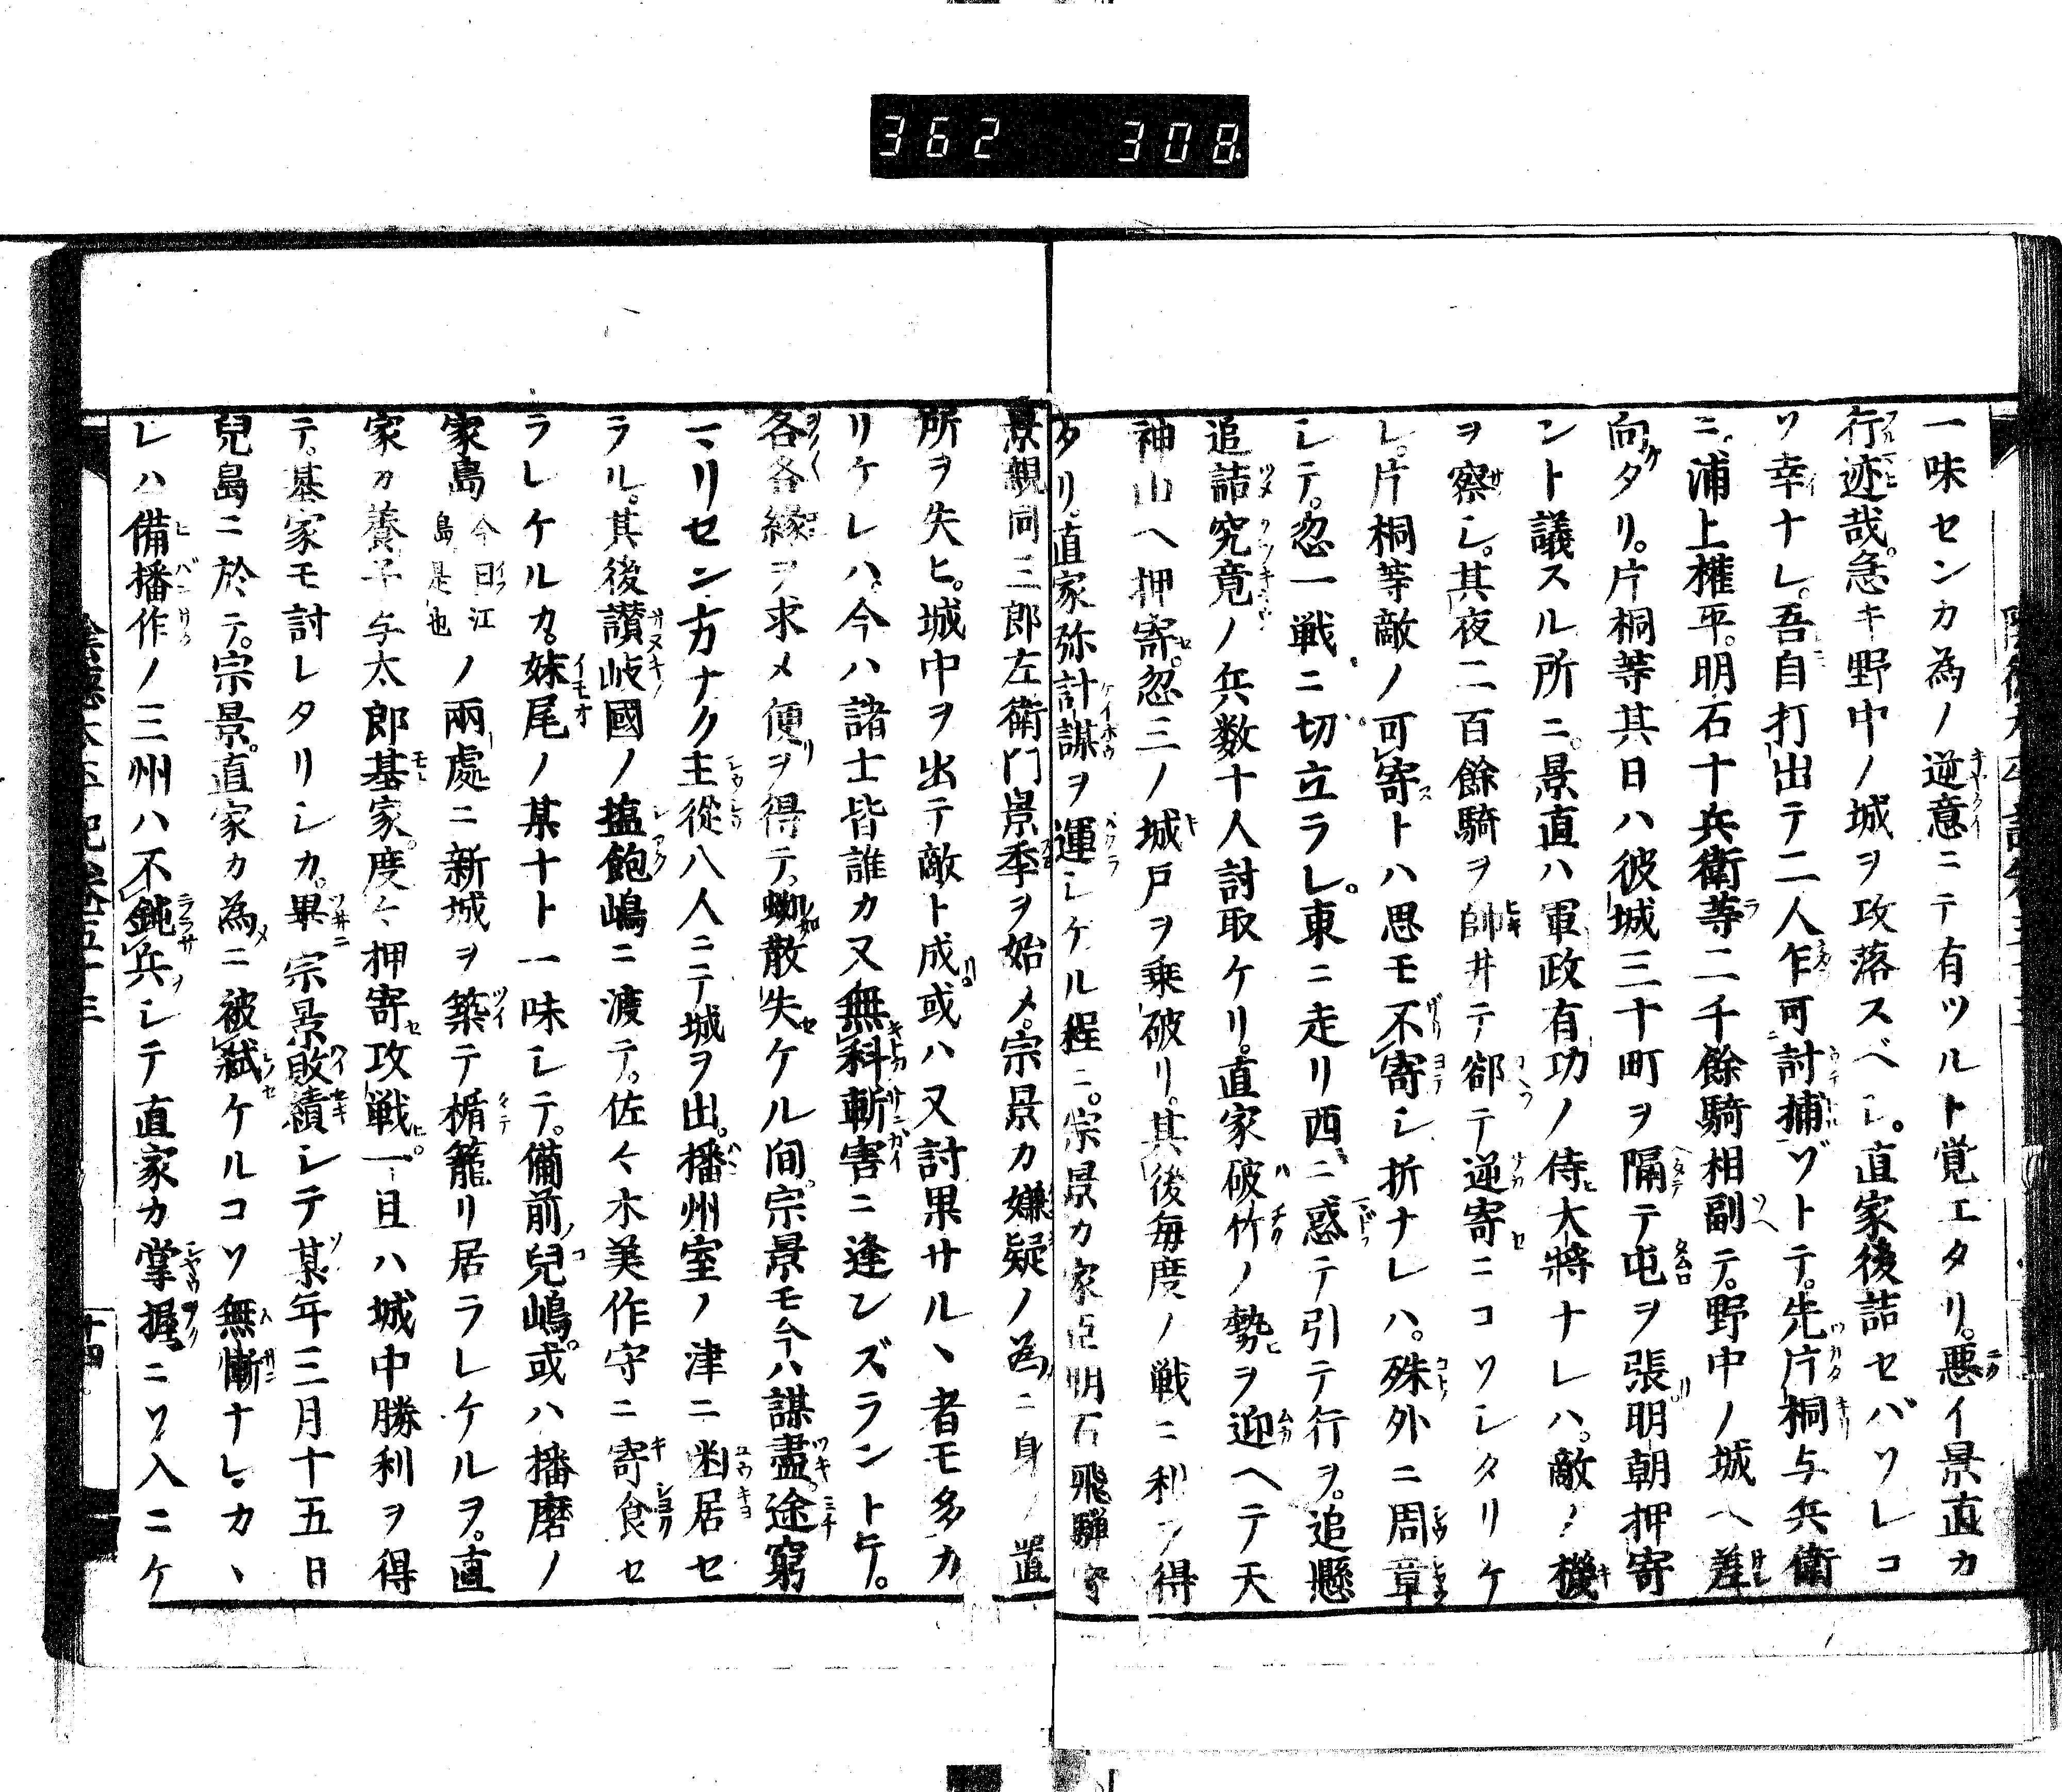 362 308
一味センカ為ノ逆意ニテ有ツルト覚エタリ。悪イ景直カ
行迹哉。急キ野中ノ城ヲ攻落スベシ。直家後詰セバソレコ
ソ幸ナレ。吾自打出テ二人乍可討捕ゾトテ。先片桐与兵衛
ニ。浦上権平。明石十兵衛等二千餘騎相副テ。野中ノ城ヘ差
向ケタリ。片桐等其日ハ彼城三十町ヲ隔テ屯ヲ張リ明朝押寄
ント議スル所ニ。景直ハ軍政有功ノ侍大将ナレハ。敵ノ機
ヲ察シ。其夜二百餘騎ヲ帥井テ卻テ逆寄ニコソシタリケ
レ。片桐等敵ノ可寄トハ思モ不寄シ折ナレハ。殊外ニ周章
シテ。忽一戦ニ切立ラレ。東ニ走リ西ニ惑テ引テ行ヲ。追懸
追詰究竟ノ兵数十人討取ケリ。直家破竹ノ勢ヲ迎ヘテ天
神山ヘ押寄。忽三ノ城戸ヲ乗破リ。其後毎度ノ戦ニ利ヲ得
タリ。直家弥計謀ヲ運シケル程ニ。宗景カ家臣明石飛騨守
景親同三郎左衛門景季ヲ始メ。宗景カ嫌疑ノ為ニ身ノ置
所ヲ失ヒ。城中ヲ出テ敵ト成リ。或ハ又討果サルヽ者モ多カ
リケレハ。今ハ諸士皆誰カ又無科斬害ニ逢ンズラントテ。
各各縁ヲ求メ便リヲ得テ。蜘散失ケル間。宗景モ今ハ謀盡。途窮
マリセン方ナク主從八人ニテ城ヲ出。播州室ノ津ニ幽居セ
ラル。其後讃岐國ノ塩飽嶋ニ渡テ。佐々木美作守ニ寄食セ
ラレケルカ。妹尾ノ某十ト一味シテ。備前兒嶋。或ハ播磨ノ
家島 今曰江島是也 ノ兩處ニ新城ヲ築テ楯籠リ居ラレケルヲ。直
家カ養子与太郎基家。度々押寄攻戦一旦ハ城中勝利ヲ得
テ。基家モ討レタリシカ。畢宗景敗績シテ某年三月十五日
兒島ニ於テ。宗景。直家カ為メニ被弑ケルコソ無慚ナレ。カヽ
レハ備播作ノ三州ハ不鈍兵シテ直家カ掌握ニソ入ニケ
十四